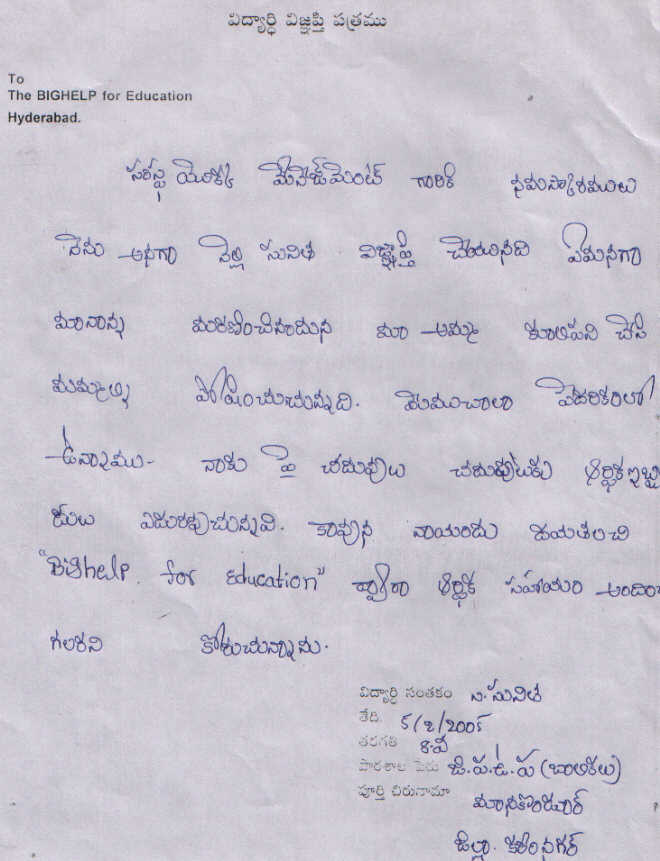 విద్యార్థి విజ్ఞప్తి పత్రము
To
The BIGHELP for Education
Hyderabad.
సంస్థ యొక్క మేనేజ్‌మెంట్ గారికి నమస్కారములు
నేను అనగా సునిత విజ్ఞప్తి చేయునది ఏమనగా
మానాన్న మరణించినందున మా అమ్మ కూలిపని చేసి
మమ్మల్ని పోషించుచున్నది. మేముచాలా పేదరికంలో
ఉన్నాము. నాకు పై చదువులు చదువుటకు ఆర్థికఇబ్బ
దులు ఎదురవుచున్నవి. కావున నాయందు దయతలచి
"BIGhelp for Education" ద్వారా ఆర్థిక సహాయం అందించ
గలరని కోరుచున్నాను.
విద్యార్థి సంతకం ని.సునిత
తేది. 5/2/2005
తరగతి 8.వ
పాఠశాల పేరు జి.ప.ఉ.ప (బాలికలు)
పూర్తి చిరునామా మానకొండూర్
జిల్లా. కరీంనగర్